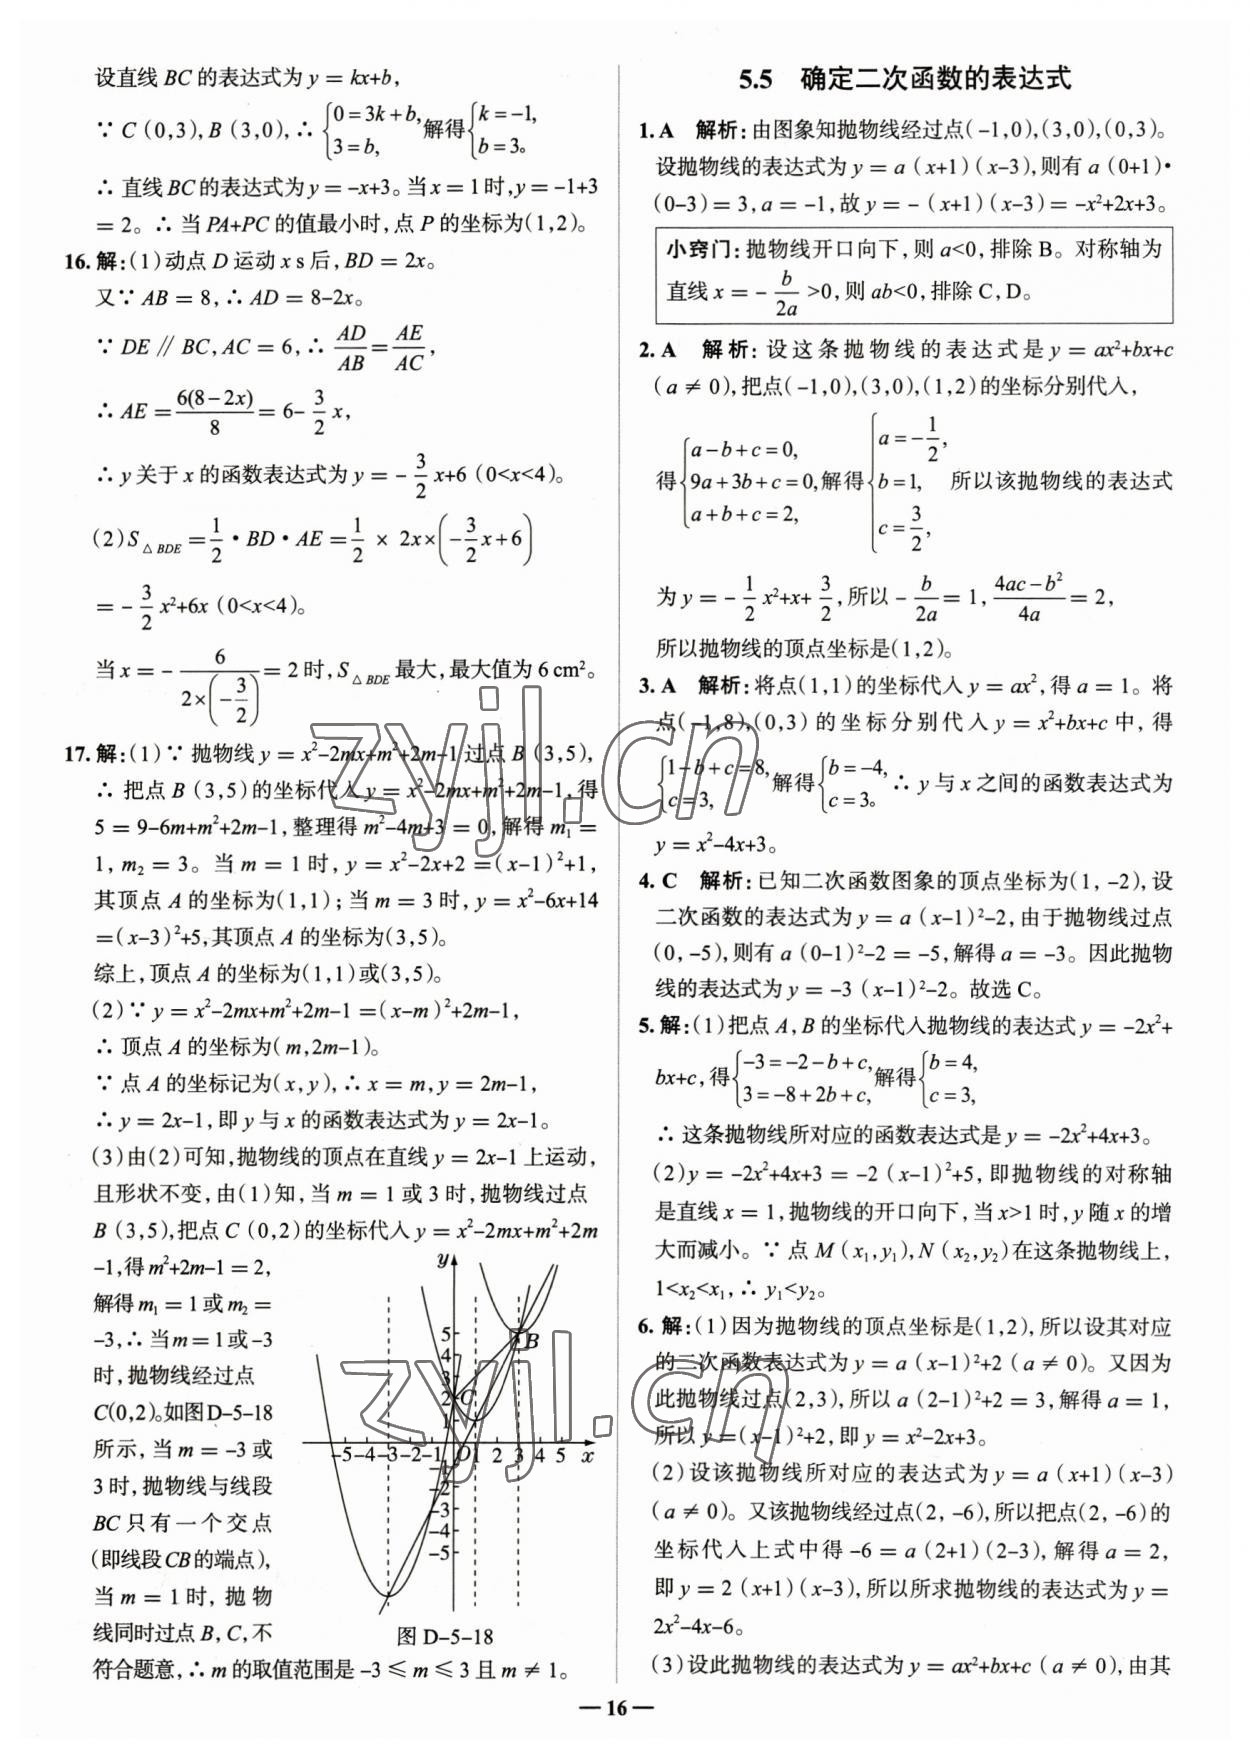 设直线 BC 的表达式为 y = kx+b,
∵ C (0,3), B (3,0), ∴ {0=3k+b, 3=b, 解得 {k=-1, b=3。
∴ 直线 BC 的表达式为 y = -x+3。当 x = 1 时, y = -1+3
= 2。∴ 当 PA+PC 的值最小时,点 P 的坐标为(1,2)。
16. 解:(1)动点 D 运动 x s 后, BD = 2x。
又∵ AB = 8, ∴ AD = 8-2x。
∵ DE // BC, AC = 6, ∴ AD/AB = AE/AC,
∴ AE = 6(8-2x)/8 = 6- 3/2 x,
∴ y 关于 x 的函数表达式为 y = - 3/2 x+6 (0<x<4)。
(2) S△BDE = 1/2 · BD · AE = 1/2 × 2x×(-3/2 x+6)
= - 3/2 x²+6x (0<x<4)。
当 x = - 6/(2×(-3/2)) = 2 时, S△BDE 最大,最大值为 6 cm²。
17. 解:(1)∵ 抛物线 y = x²-2mx+m²+2m-1 过点 B (3,5),
∴ 把点 B (3,5)的坐标代入 y = x²-2mx+m²+2m-1,得
5 = 9-6m+m²+2m-1,整理得 m²-4m+3 = 0,解得 m₁ =
1, m₂ = 3。当 m = 1 时, y = x²-2x+2 =(x-1)²+1,
其顶点 A 的坐标为(1,1);当 m = 3 时, y = x²-6x+14
=(x-3)²+5,其顶点 A 的坐标为(3,5)。
综上,顶点 A 的坐标为(1,1)或(3,5)。
(2)∵ y = x²-2mx+m²+2m-1 =(x-m)²+2m-1,
∴ 顶点 A 的坐标为(m,2m-1)。
∵ 点 A 的坐标记为(x,y), ∴ x = m, y = 2m-1,
∴ y = 2x-1,即 y 与 x 的函数表达式为 y = 2x-1。
(3)由(2)可知,抛物线的顶点在直线 y = 2x-1 上运动,
且形状不变,由(1)知,当 m = 1 或 3 时,抛物线过点
B (3,5),把点 C (0,2)的坐标代入 y = x²-2mx+m²+2m
-1,得 m²+2m-1 = 2,
解得 m₁ = 1 或 m₂ =
-3, ∴ 当 m = 1 或 -3
时,抛物线经过点
C(0,2)。如图D-5-18
所示,当 m = -3 或
3 时,抛物线与线段
BC 只有一个交点
(即线段CB的端点),
当 m = 1 时,抛物
线同时过点 B, C,不
符合题意, ∴ m 的取值范围是 -3 ≤ m ≤ 3 且 m ≠ 1。
y
5
4
3
2
1
B
C
-5 -4 -3 -2 -1 O 1 2 3 4 5 x
-1
-2
-3
-4
-5
图 D-5-18
5.5 确定二次函数的表达式
1. A 解析:由图象知抛物线经过点(-1,0),(3,0),(0,3)。
设抛物线的表达式为 y = a (x+1)(x-3),则有 a (0+1)·
(0-3)= 3, a = -1,故 y = -(x+1)(x-3)= -x²+2x+3。
小窍门:抛物线开口向下,则 a<0,排除 B。对称轴为
直线 x = - b/2a >0,则 ab<0,排除 C, D。
2. A 解析:设这条抛物线的表达式是 y = ax²+bx+c
(a ≠ 0),把点(-1,0),(3,0),(1,2)的坐标分别代入,
得 {a-b+c=0, 9a+3b+c=0, a+b+c=2, 解得 {a=-1/2, b=1, c=3/2, 所以该抛物线的表达式
为 y = - 1/2 x²+x+ 3/2,所以 - b/2a = 1, (4ac-b²)/4a = 2,
所以抛物线的顶点坐标是(1,2)。
3. A 解析:将点(1,1)的坐标代入 y = ax²,得 a = 1。将
点(-1,8),(0,3)的坐标分别代入 y = x²+bx+c 中,得
{1-b+c=8, c=3, 解得 {b=-4, c=3。 ∴ y 与 x 之间的函数表达式为
y = x²-4x+3。
4. C 解析:已知二次函数图象的顶点坐标为(1, -2),设
二次函数的表达式为 y = a (x-1)²-2,由于抛物线过点
(0, -5),则有 a (0-1)²-2 = -5,解得 a = -3。因此抛物
线的表达式为 y = -3 (x-1)²-2。故选C。
5. 解:(1)把点 A, B 的坐标代入抛物线的表达式 y = -2x²+
bx+c,得 {-3=-2-b+c, 3=-8+2b+c, 解得 {b=4, c=3,
∴ 这条抛物线所对应的函数表达式是 y = -2x²+4x+3。
(2) y = -2x²+4x+3 = -2 (x-1)²+5,即抛物线的对称轴
是直线 x = 1,抛物线的开口向下,当 x>1 时, y 随 x 的增
大而减小。∵ 点 M (x₁,y₁), N (x₂,y₂)在这条抛物线上,
1<x₂<x₁, ∴ y₁<y₂。
6. 解:(1)因为抛物线的顶点坐标是(1,2),所以设其对应
的二次函数表达式为 y = a (x-1)²+2 (a ≠ 0)。又因为
此抛物线过点(2,3),所以 a (2-1)²+2 = 3,解得 a = 1,
所以 y = (x-1)²+2,即 y = x²-2x+3。
(2)设该抛物线所对应的表达式为 y = a (x+1)(x-3)
(a ≠ 0)。又该抛物线经过点(2, -6),所以把点(2, -6)的
坐标代入上式中得 -6 = a (2+1)(2-3),解得 a = 2,
即 y = 2 (x+1)(x-3),所以所求抛物线的表达式为 y =
2x²-4x-6。
(3)设此抛物线的表达式为 y = ax²+bx+c (a ≠ 0),由其
— 16 —
zyjl.cn
zyjl.cn